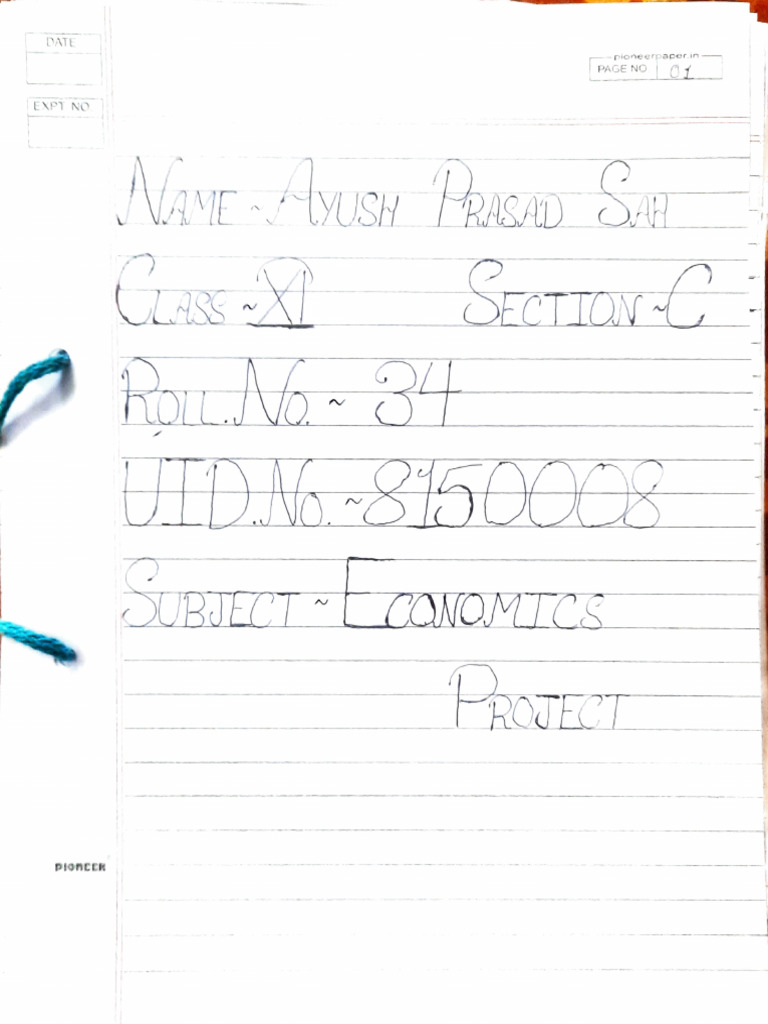 DATE
pioneerpaper.in
PAGE NO 01
EXPT NO
NAME ~ AYUSH PRASAD SAH
CLASS ~ XI SECTION ~ C
ROLL. No. ~ 34
UID. No. ~ 8150008
SUBJECT ~ ECONOMICS
PROJECT
PIONEER